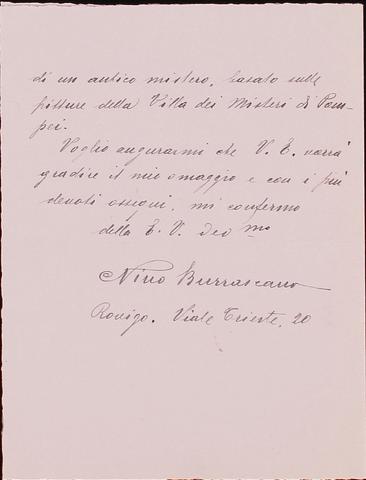 di un antico mistero, basato sulle
pitture della Villa dei Misteri di Pom-
pei.
Voglio augurarmi che V. E. vorrà
gradire il mio omaggio e con i più
devoti ossequi, mi confermo
della E. V. Deo mo
Nino Burrascano
Rovigo. Viale Trieste, 20